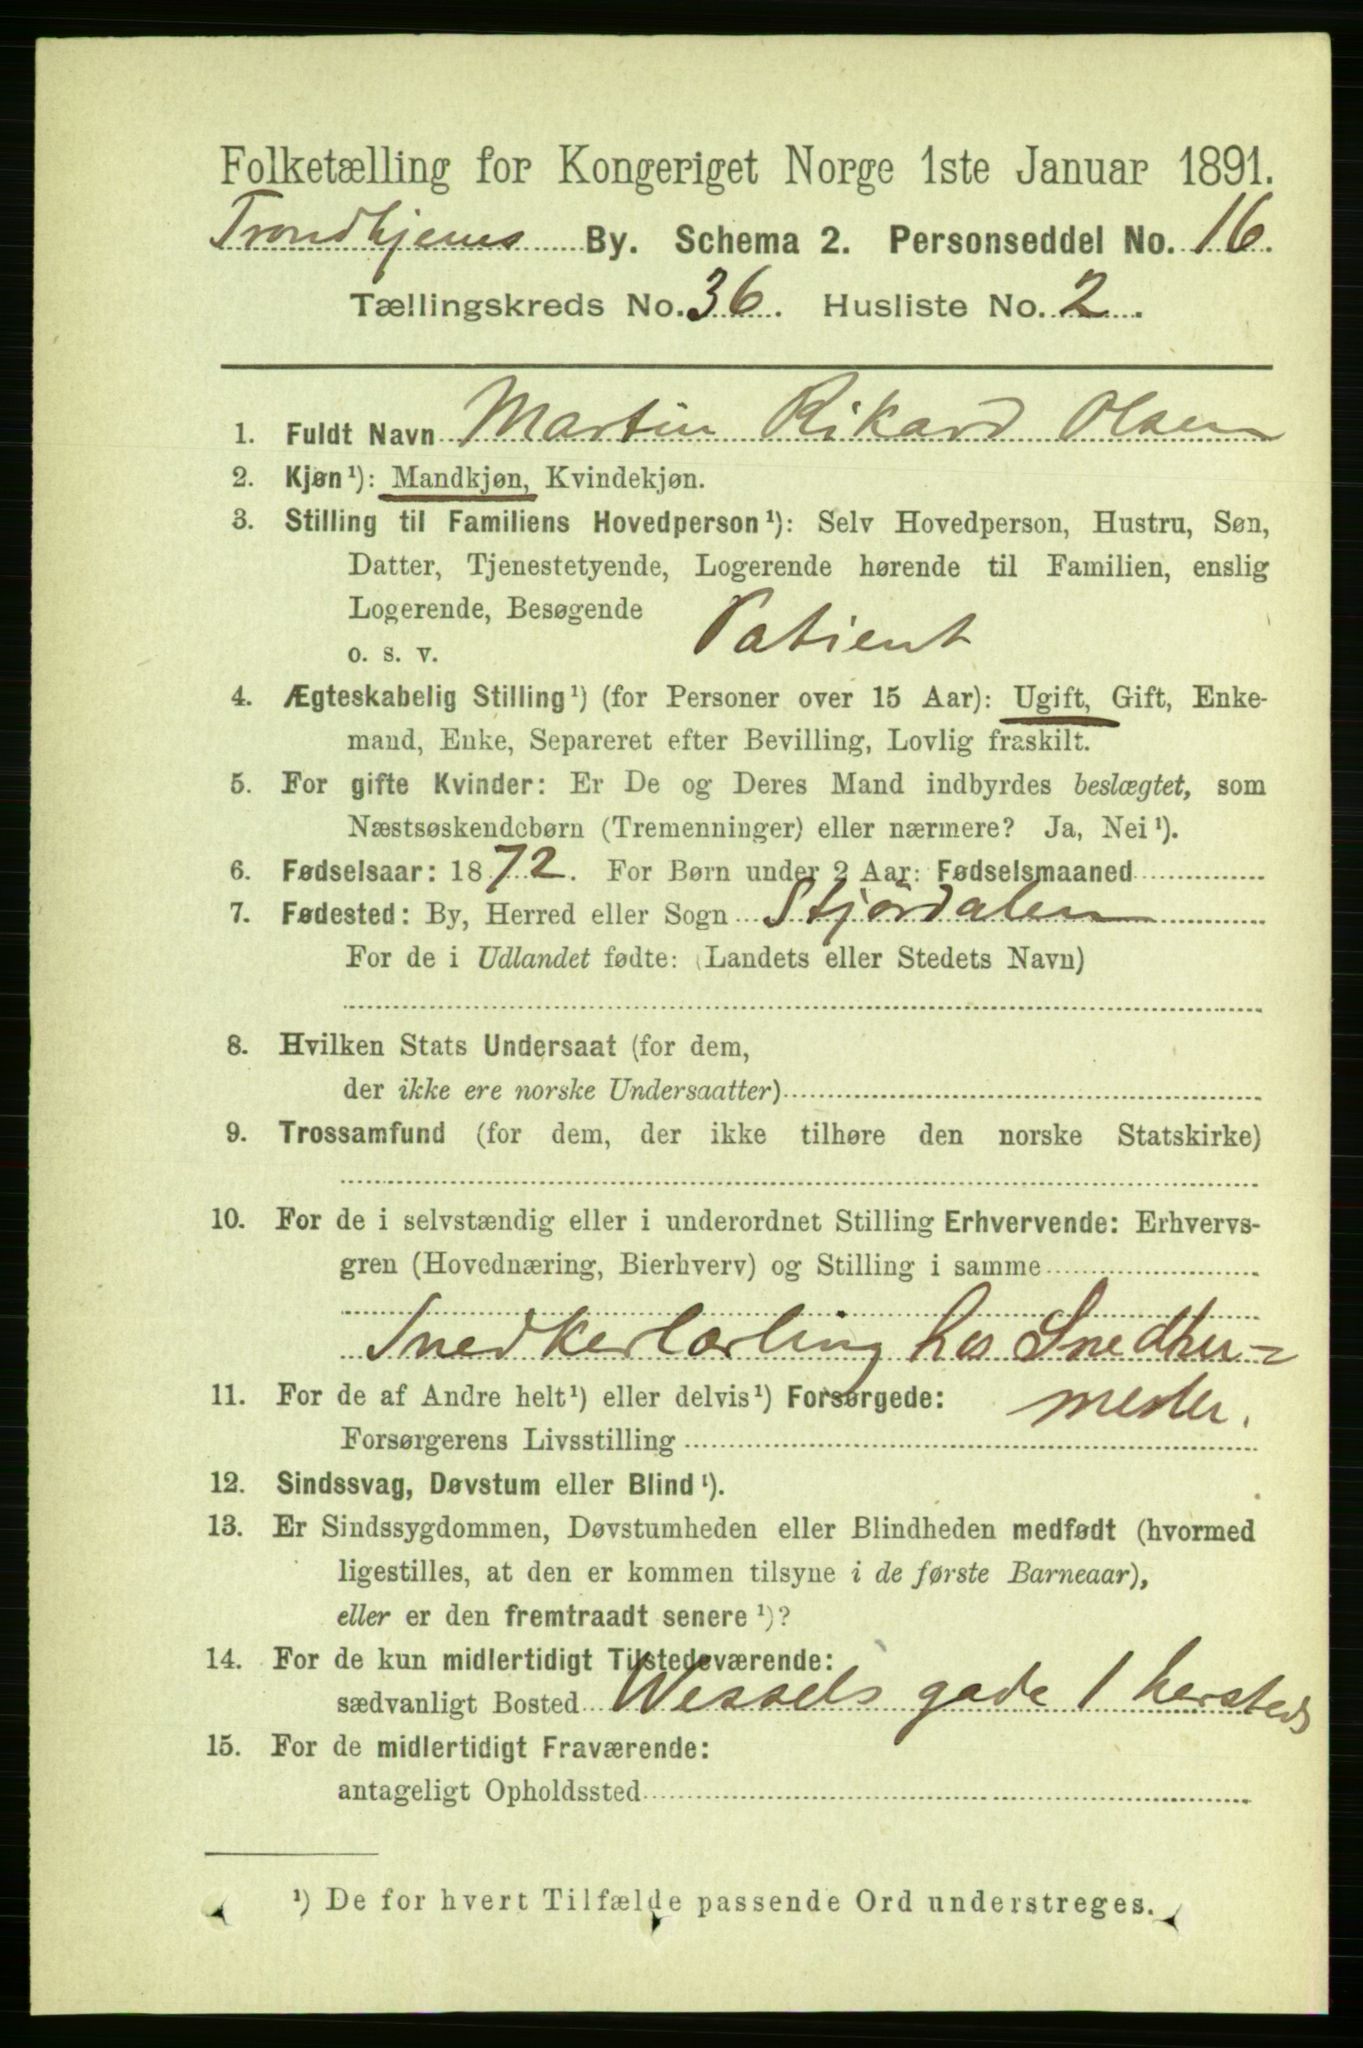 Folketælling for Kongeriget Norge 1ste Januar 1891.
Trondhjems By. Schema 2. Personseddel No. 16.
Tællingskreds No. 36. Husliste No. 2.
1. Fuldt Navn Martin Rikard Olsen
2. Kjøn¹): Mandkjøn, Kvindekjøn.
3. Stilling til Familiens Hovedperson¹): Selv Hovedperson, Hustru, Søn,
Datter, Tjenestetyende, Logerende hørende til Familien, enslig
Logerende, Besøgende
o. s. v. Patient
4. Ægteskabelig Stilling¹) (for Personer over 15 Aar): Ugift, Gift, Enke-
mand, Enke, Separeret efter Bevilling, Lovlig fraskilt.
5. For gifte Kvinder: Er De og Deres Mand indbyrdes beslægtet, som
Næstsøskendebørn (Tremenninger) eller nærmere? Ja, Nei¹).
6. Fødselsaar: 1872. For Børn under 2 Aar: Fødselsmaaned
7. Fødested: By, Herred eller Sogn Stjørdalen
For de i Udlandet fødte: (Landets eller Stedets Navn)
8. Hvilken Stats Undersaat (for dem,
der ikke ere norske Undersaatter)
9. Trossamfund (for dem, der ikke tilhøre den norske Statskirke)
10. For de i selvstændig eller i underordnet Stilling Erhvervende: Erhvervs-
gren (Hovednæring, Bierhverv) og Stilling i samme
Snedkerlærling hos Snedker-
mester.
11. For de af Andre helt¹) eller delvis¹) Forsørgede:
Forsørgerens Livsstilling
12. Sindssvag, Døvstum eller Blind¹).
13. Er Sindssygdommen, Døvstumheden eller Blindheden medfødt (hvormed
ligestilles, at den er kommen tilsyne i de første Barneaar),
eller er den fremtraadt senere¹)?
14. For de kun midlertidigt Tilstedeværende:
sædvanligt Bosted Wessels gade 1 hersteds
15. For de midlertidigt Fraværende:
antageligt Opholdssted
¹) De for hvert Tilfælde passende Ord understreges.